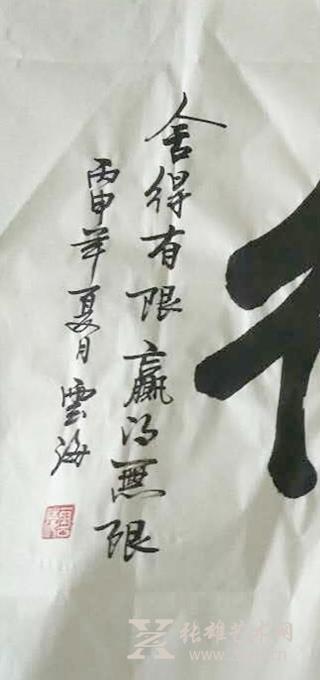 舍得有限赢得無限
丙申年夏月雲海
张雄艺术网